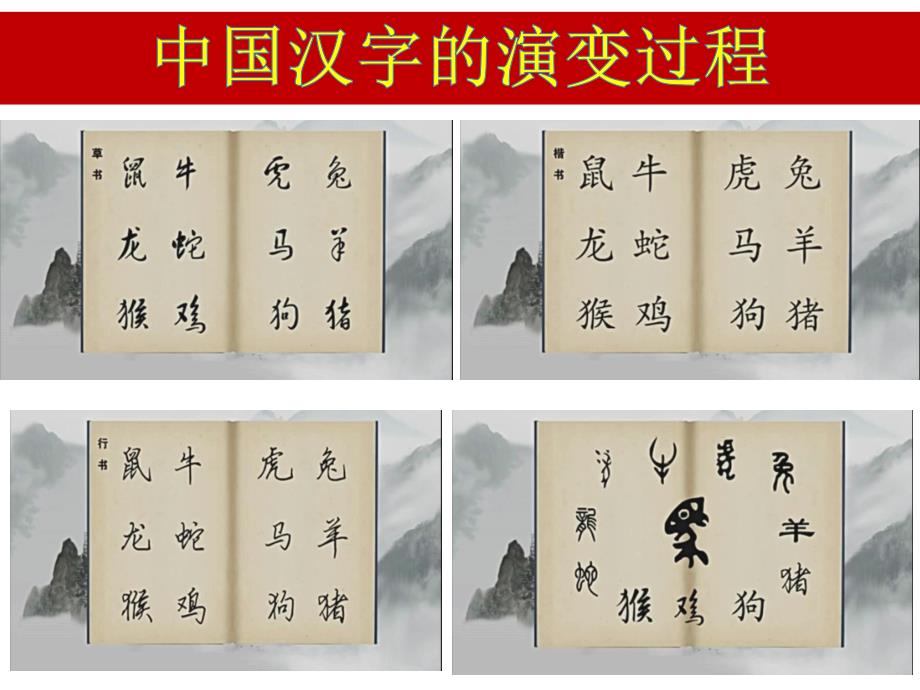 中国汉字的演变过程
草书
鼠 牛 虎 兔
龙 蛇 马 羊
猴 鸡 狗 猪
楷书
鼠 牛 虎 兔
龙 蛇 马 羊
猴 鸡 狗 猪
行书
鼠 牛 虎 兔
龙 蛇 马 羊
猴 鸡 狗 猪
牛 兔
龍 羊
蛇 猪
猴 鸡 狗